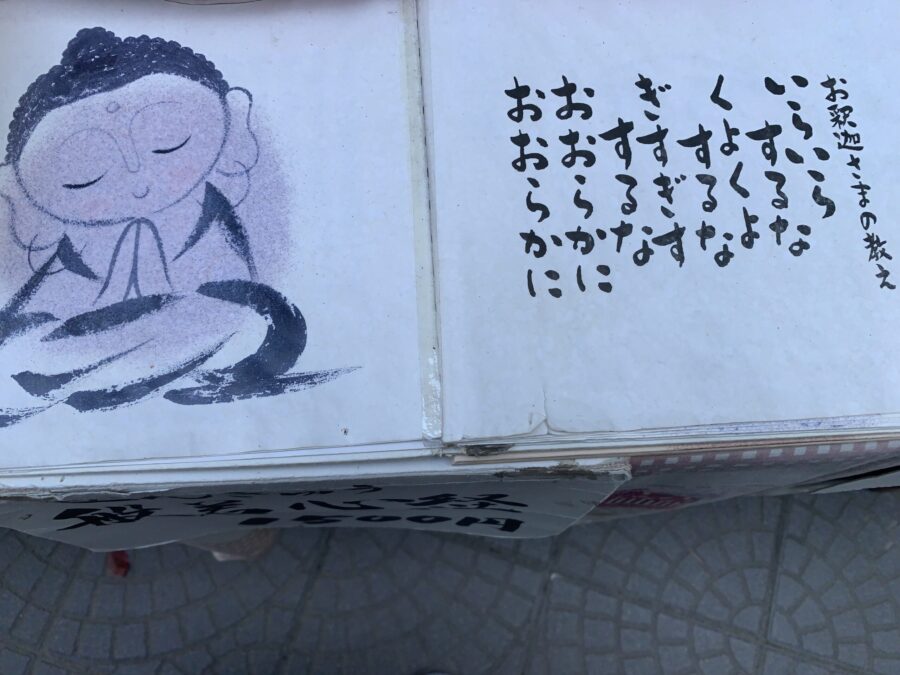 お釈迦さまの教え
いらいら
するな
くよくよ
するな
ぎすぎす
するな
おおらかに
おおらかに
心経
1500円